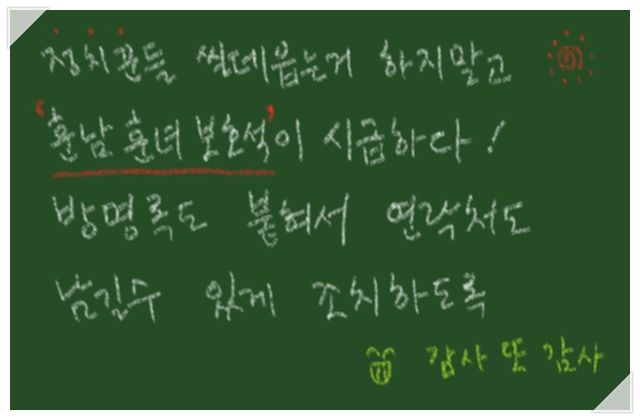 정치꾼들 씰데읍는거 하지말고
'훈남 훈녀 보호석'이 시급하다!
방명록도 붙혀서 연락처도
남길수 있게 조치하도록
감사 또 감사